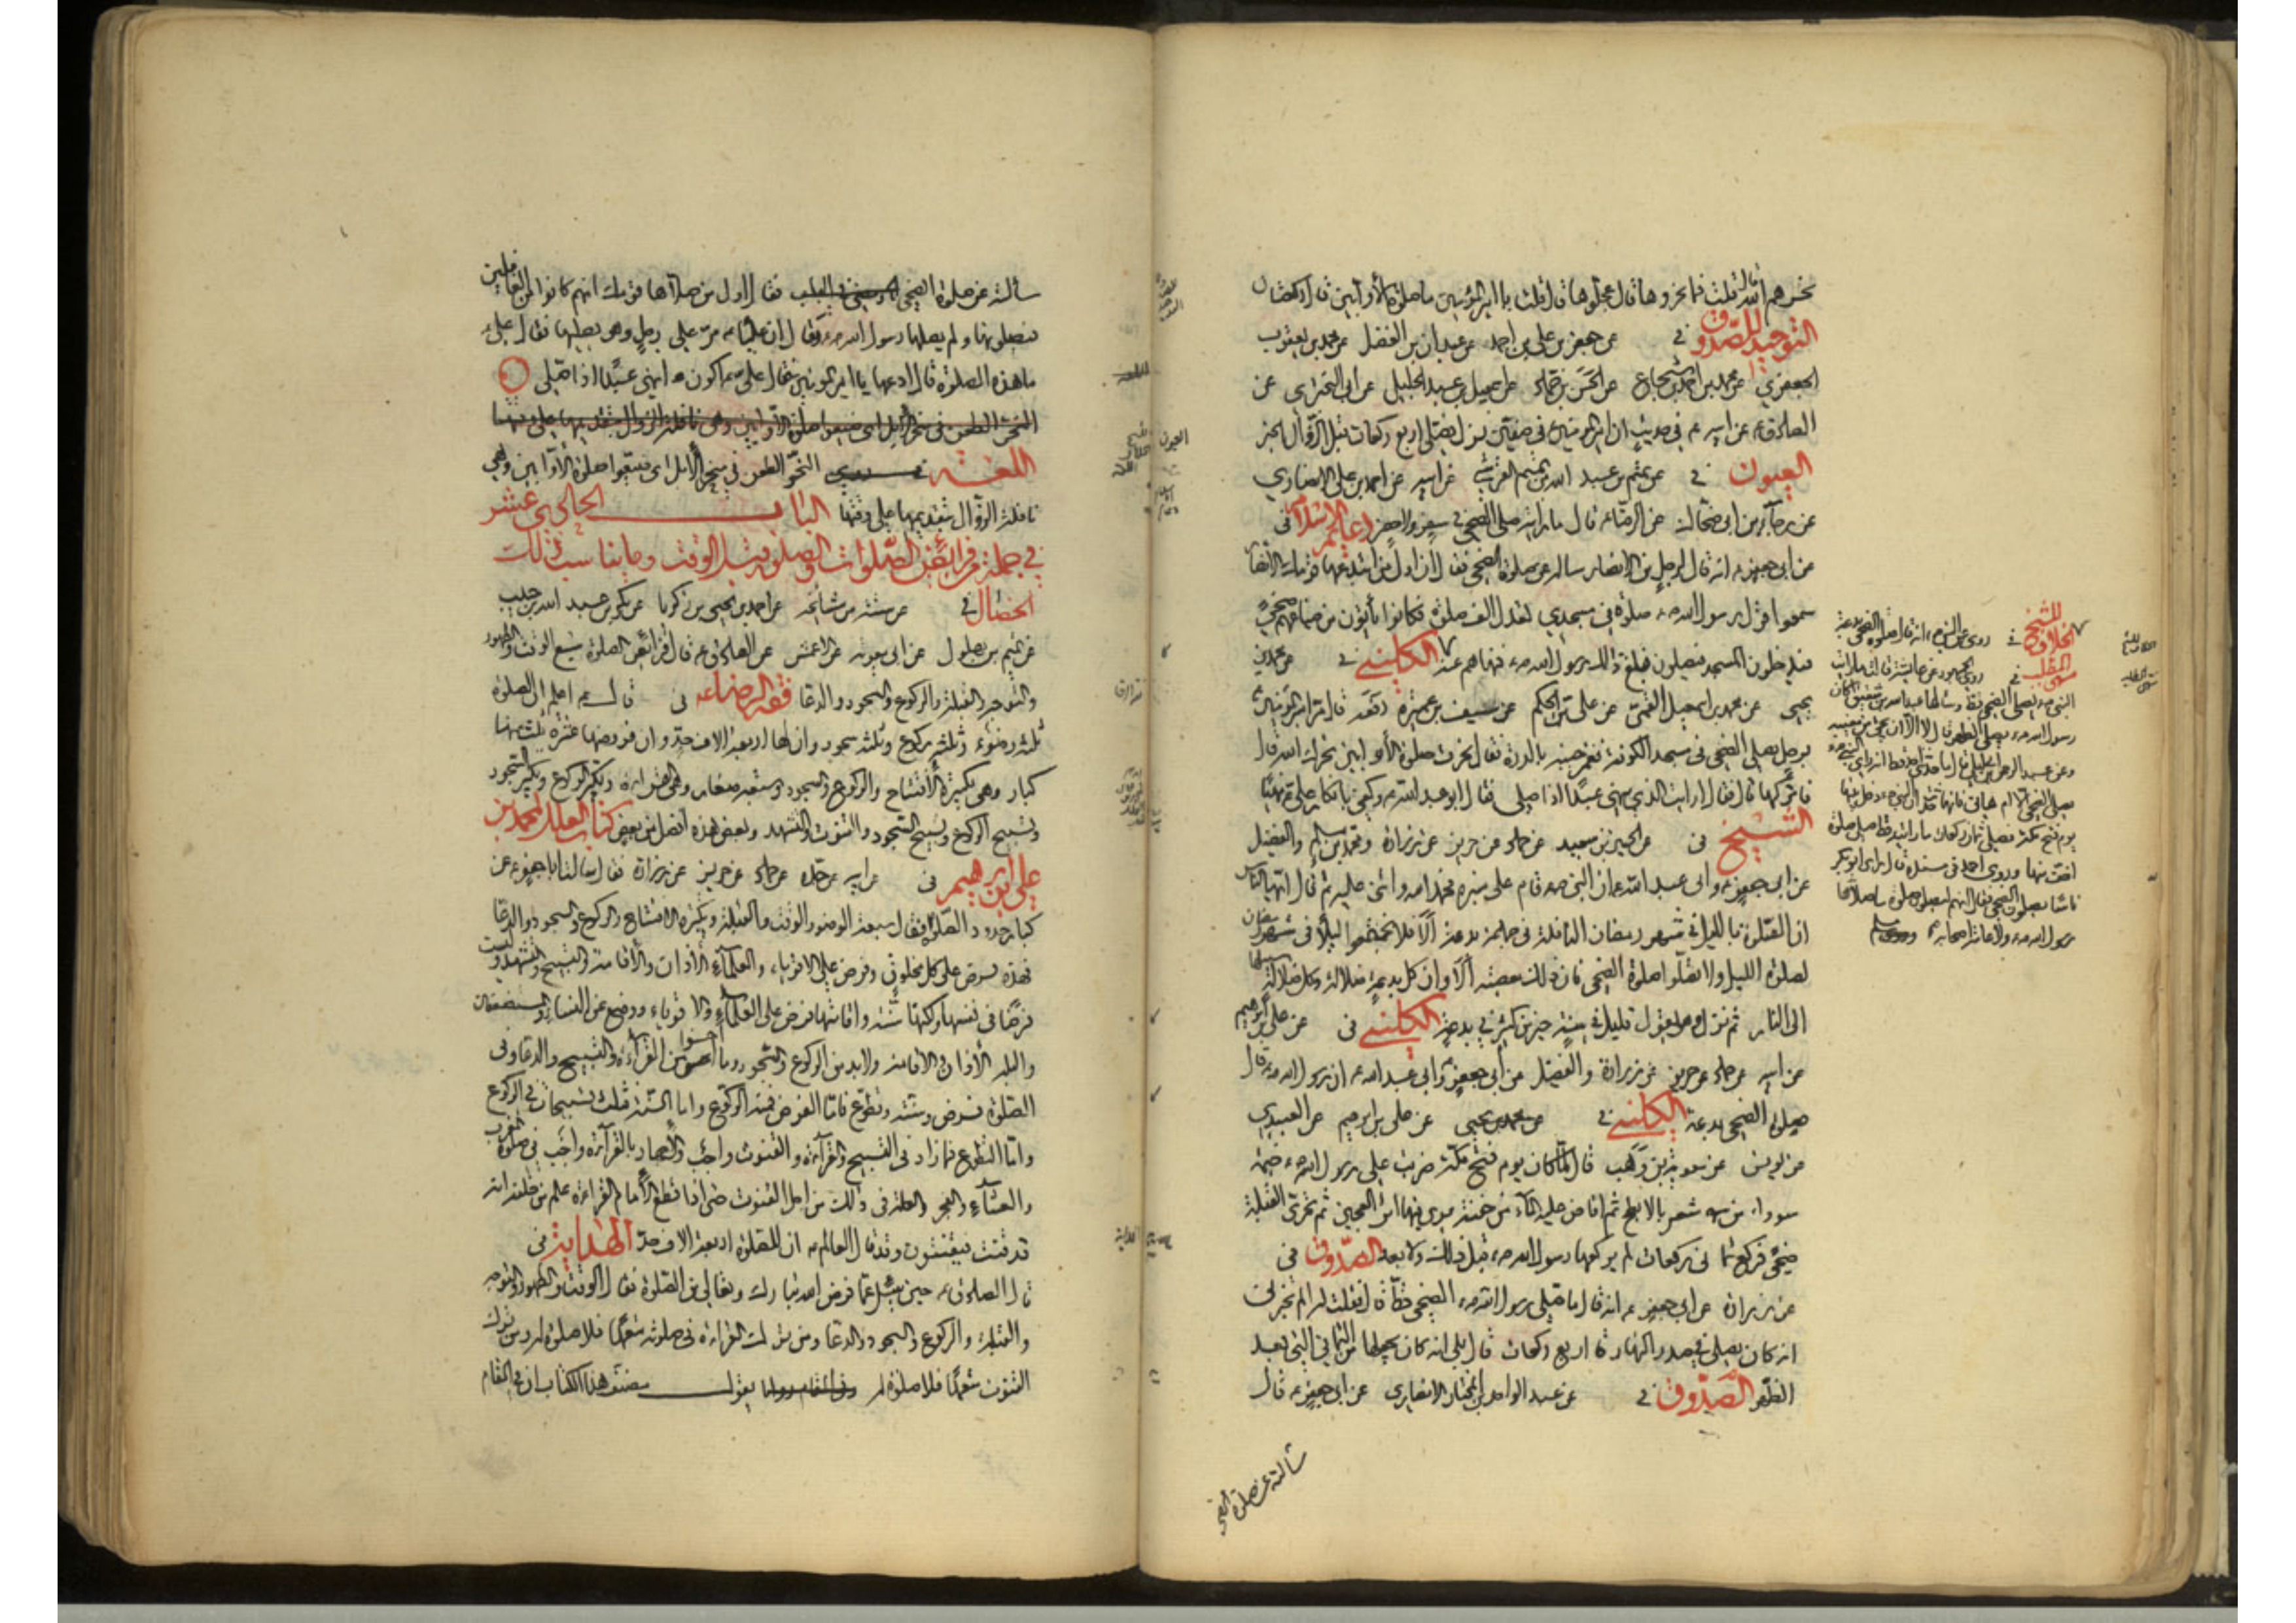 نحرهم الله قلت فما نحروها قال عجلوها قال قلت يا امير المؤمنين ما صلوة الأوابين قال ركعتان
التوحيد للصدوق في عن جعفر بن علي بن احمد عن عبدان بن الفضل عن محمد بن يعقوب
الجعفري عن محمد بن احمد بن شجاع عن الحسن بن حماد عن اسمعيل بن عبد الجليل عن ابي البختري عن
الصادق ع عن ابيه ع في حديث ان امير المؤمنين ع في صفين نزل فصلى اربع ركعات قبل الزوال الخبر
العيون في عن تميم بن عبد الله بن تميم القرشي عن ابيه عن احمد بن علي الانصاري
عن رجاء بن ابي ضحاك عن الرضا ع قال ما رايته صلى الضحى في سفر ولا حضر دعائم الاسلام في
عن ابي جعفر ع انه قال لرجل من الانصار ساله عن صلوة الضحى فقال ان اول من ابتدعها قومك الانصار
سمعوا قول رسول الله ص صلوة في مسجدي تعدل الف صلوة فكانوا ياتون من ضياعهم ضحى
فيدخلون المسجد فيصلون فبلغ ذلك رسول الله ص فنهاهم عنه الكليني في عن محمد بن
يحيى عن محمد بن اسمعيل القمي عن علي بن الحكم عن سيف بن عميرة رفعه قال مر امير المؤمنين ع
برجل يصلي الضحى في مسجد الكوفة فغمز جنبه بالدرة وقال نحرت صلوة الأوابين نحرك الله قال
فاتركها قال فقال ارايت الذي ينهى عبدا اذا صلى فقال ابو عبد الله ع وكفى بانكار علي ع نهيا
الشيخ في عن الحسين بن سعيد عن حماد عن حريز عن زرارة ومحمد بن مسلم والفضيل
عن ابي جعفر ع وابي عبد الله ع ان النبي ص قام على منبره فحمد الله واثنى عليه ثم قال ايها الناس
ان الصلوة بالليل في شهر رمضان النافلة في جماعة بدعة الا فلا تجتمعوا ليلا في شهر رمضان
لصلوة الليل ولا تصلوا صلوة الضحى فان ذلك معصية الا وان كل بدعة ضلالة وكل ضلالة سبيلها
الى النار ثم نزل وهو يقول قليل في سنة خير من كثير في بدعة الكليني في عن علي بن ابرهيم
عن ابيه عن حماد عن حريز عن زرارة والفضيل عن ابي جعفر وابي عبد الله ع ان رسول الله ص قال
صلوة الضحى بدعة الكليني في عن محمد بن يحيى عن علي بن ابرهيم عن العبيدي
عن يونس عن معوية بن وهب قال لما كان يوم فتح مكة ضربت على رسول الله ص خيمة
سوداء من شعر بالابطح ثم افاض عليه الماء من جفنة يرى فيها اثر العجين ثم تحرى القبلة
ضحى فركع ثماني ركعات لم يركعها رسول الله ص قبل ذلك ولا بعد الصدوق في
عن زرارة عن ابي جعفر ع انه قال ما صلى رسول الله ص الضحى قط قال فقلت له الم تخبرني
انه كان يصلي في صدر النهار اربع ركعات قال بلى انه كان يجعلها من الثماني التي بعد
الظهر الصدوق في عن عبد الواحد بن المختار الانصاري عن ابي جعفر ع قال
سالته عن صلوة الضحى
للشيخ الخلاف في روي عن النبي ص انه قال صلوة الضحى بدعة
النبي ص يصلي الضحى قط وسالها عبد الله بن شقيق اكان
رسول الله ص يصلي الضحى قال لا الا ان يجئ من مغيبه
وعن عبد الرحمن بن ابي ليلى قال ما حدثني احد قط انه راى النبي ص
يصلي الضحى الا ام هاني فانها حدثت ان النبي ص دخل بيتها
يوم فتح مكة فصلى ثمان ركعات ما رايته قط صلى صلوة
اخف منها وروى احمد في مسنده قال راى ابو بكر
ناسا يصلون الضحى فقال انهم ليصلون صلوة ما صلاها
رسول الله ص ولا عامة اصحابه
سألته عن صلوة الضحى فقال اول من صلاها قومك انهم كانوا من الغافلين
فيصلونها ولم يصلها رسول الله ص وقال ان عليا ع مر على رجل وهو يصليها فقال علي ع
ما هذه الصلوة قال ادعها يا امير المؤمنين فقال علي ع اكون انهى عبدا اذا صلى
اللغة النحر الطعن في منحر الابل اي ضيعوا صلوة الأوابين وهي
نافلة الزوال بتقديمها على وقتها الباب الحادي عشر
في جملة فرائض الصلوات والصلوة قبل الوقت وما يناسب ذلك
الخصال في عن ستة من مشائخه عن احمد بن يحيى بن زكريا عن بكر بن عبد الله بن حبيب
عن تميم بن بهلول عن ابي معوية عن الاعمش عن الصادق ع قال فرائض الصلوة سبع الوقت والطهور
والتوجه والقبلة والركوع والسجود والدعا فقه الرضا ع في قال ع اعلم ان الصلوة
ثلثه وضوء وثلثه ركوع وثلثه سجود وان لها اربعة الاف حد وان فروضها عشرة ثلث منها
كبار وهي تكبيرة الافتتاح والركوع والسجود وسبعة صغار وهي القراءة وتكبير الركوع وتكبير السجود
وتسبيح الركوع وتسبيح السجود والقنوت والتشهد وبعض هذه افضل من بعض كتاب العلل لمحمد بن
علي بن ابرهيم في عن ابيه عن جده عن حماد عن حريز عن زرارة قال سالنا ابا جعفر ع عن
كبار حدود الصلوة فقال سبعة الوضوء والوقت والقبلة وتكبيرة الافتتاح والركوع والسجود والدعا
فهذه فرض على كل مخلوق وفرض على الاقوياء والعلماء الأذان والأقامة والقراءة والتسبيح والتشهد وليست
فرضا في نفسها ولكنها سنة واقامتها فرض على العلماء والاقوياء ووضع عن النساء والمستضعفين
والبله الأذان والاقامة ولا بد من الركوع والسجود وما احسنوا من القراءة والتسبيح والدعا وفي
الصلوة فرض وسنة وتطوع فاما الفرض فمنه الركوع واما السنة فثلث تسبيحات في الركوع
واما التطوع فما زاد في التسبيح والقراءة والقنوت واجب والاجهار بالقراءة واجب في صلوة المغرب
والعشاء والفجر والعلة في ذلك من اجل القنوت حتى اذا قطع الأمام القراءة علم من خلفه انه
قد قنت فيقنتون وقد قال العالم ع ان للصلوة اربعة الاف حد الهداية في
قال الصادق ع حين سئل عما فرض الله تبارك وتعالى من الصلوة فقال الوقت والطهور والتوجه
والقبلة والركوع والسجود والدعا ومن ترك القراءة في صلوته متعمدا فلا صلوة له ومن ترك
القنوت متعمدا فلا صلوة له يقول مصنف هذا الكتاب ان في المقام